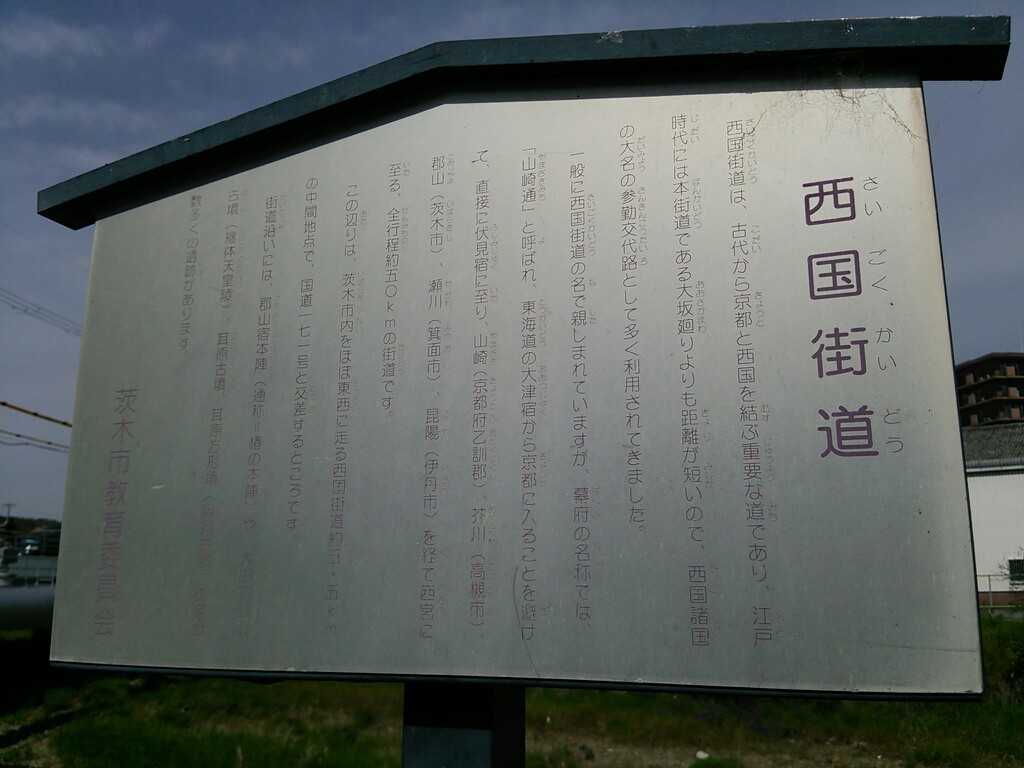 西国街道
さい ごく かい どう
西国街道は、古代から京都と西国を結ぶ重要な道であり、江戸
時代には本街道である大坂廻りよりも距離が短いので、西国諸国
の大名の参勤交代路として多く利用されてきました。
一般に西国街道の名で親しまれていますが、幕府の名称では、
「山崎通」と呼ばれ、東海道の大津宿から京都に入ることを避け
て、直接に伏見宿に至り、山崎（京都府乙訓郡）、芥川（高槻市）、
郡山（茨木市）、瀬川（箕面市）、昆陽（伊丹市）を経て西宮に
至る、全行程約五〇kmの街道です。
この辺りは、茨木市内をほぼ東西に走る西国街道約五・五km
の中間地点で、国道一七一号と交差するところです。
街道沿いには、郡山宿本陣（通称＝椿の本陣）や、
古墳（継体天皇陵）、耳原古墳、
数多くの遺跡があります。
茨木市教育委員会